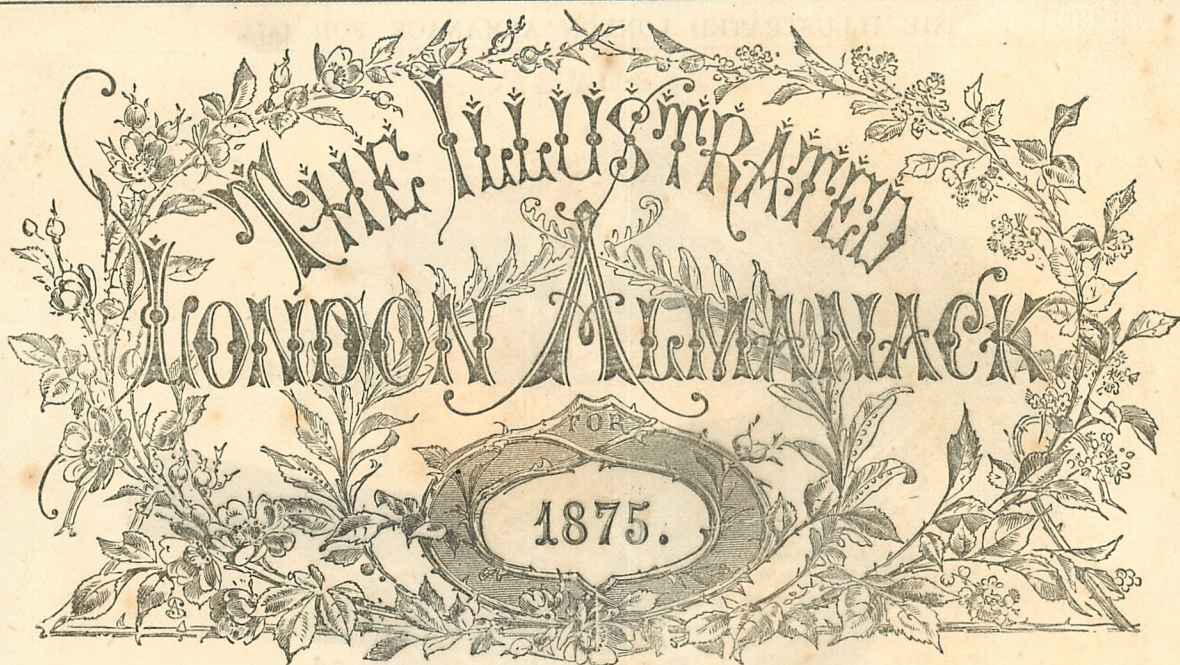 THE ILLUSTRATED
LONDON ALMANACK
FOR
1875.